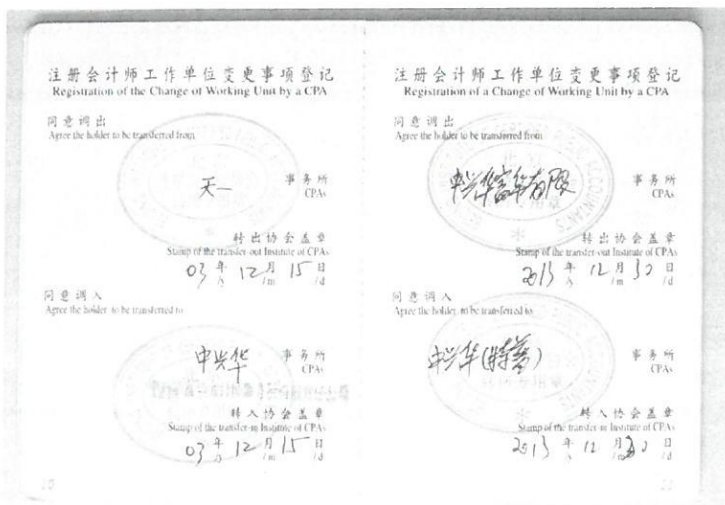 注册会计师工作单位变更事项登记
Registration of the Change of Working Unit by a CPA
同意调出
Agree the holder to be transferred from
天一
事务所
CPAs
转出协会盖章
Stamp of the transfer-out Institute of CPAs
03年12月15日
/y /m /d
同意调入
Agree the holder to be transferred to
中兴华
事务所
CPAs
转入协会盖章
Stamp of the transfer-in Institute of CPAs
03年12月15日
/y /m /d
10
注册会计师工作单位变更事项登记
Registration of a Change of Working Unit by a CPA
同意调出
Agree the holder to be transferred from
中兴华富华有限
事务所
CPAs
转出协会盖章
Stamp of the transfer-out Institute of CPAs
2013年12月30日
/y /m /d
同意调入
Agree the holder to be transferred to
中兴华(特普)
事务所
CPAs
转入协会盖章
Stamp of the transfer-in Institute of CPAs
2013年12月30日
/y /m /d